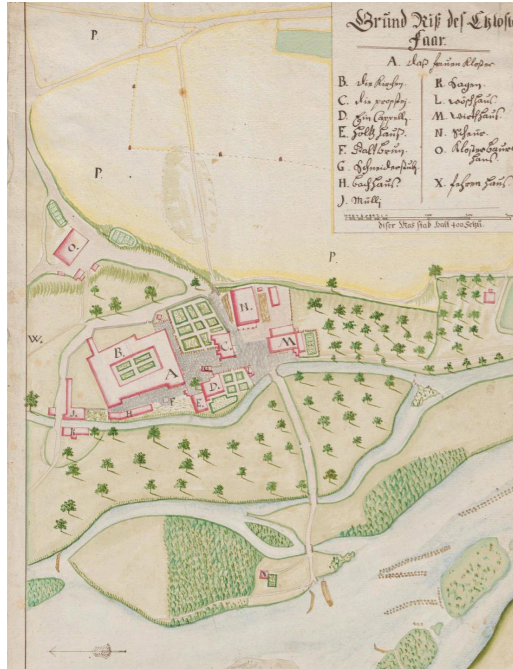 Grund Riß des Closte
Faar.
A. daß frauen Kloster
B. die Kirchen.
C. die propstej.
D. Ein Cappelli
E. Holtz hauß.
F. Kalt brun.
G. Schneiderstuben
H. bachhauß.
J. Mülli
K. Sagen.
L. wöschhauß.
M. wirthhauß.
N. Scheur.
O. Klosterbaur
hauß.
X. fehren hauß
diser Mas stab halt 400 Schu.
P.
P.
P.
O.
W.
N.
B.
C.
M.
A
D.
J.
H
F
E.